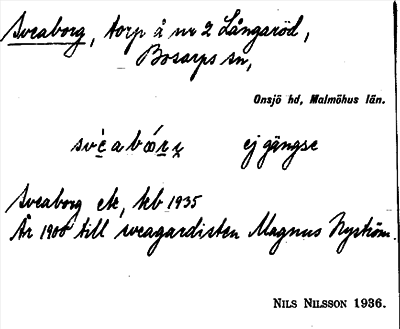 Sveaborg, torp å nr 2 Långaröd,
Bosarps sn,
Onsjö hd, Malmöhus län.
ej gängse
Sveaborg ek, kb 1935
År 1900 till sveagardisten Magnus Nyström.
NILS NILSSON 1936.